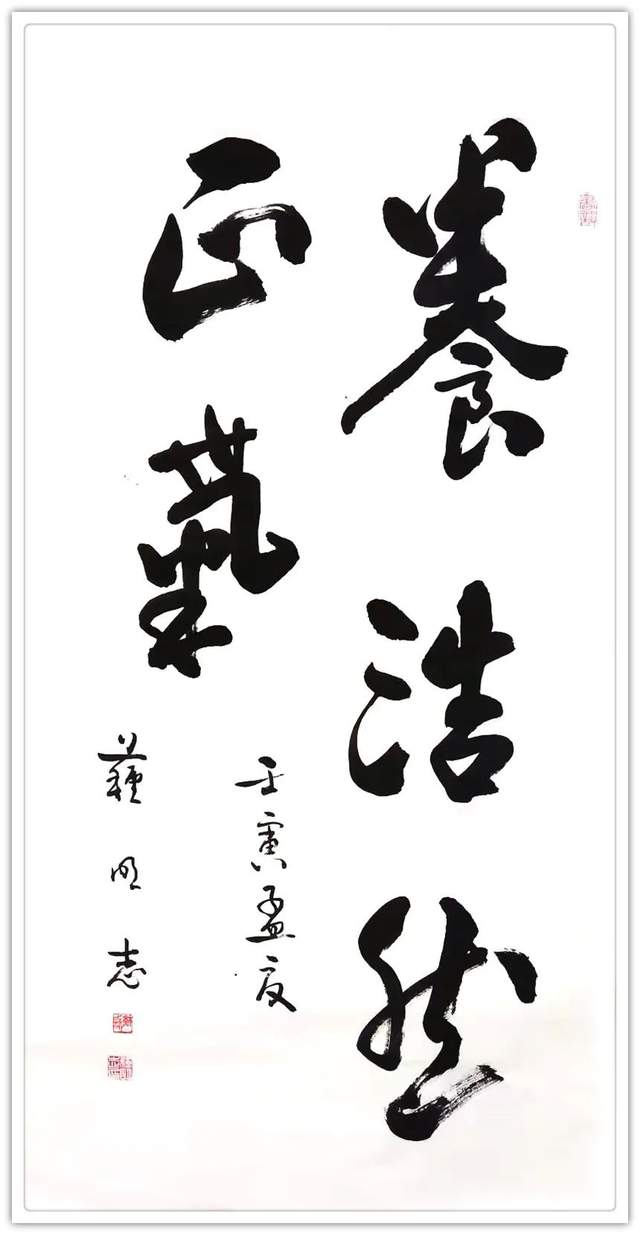 養浩然
正氣
壬寅孟夏
蘇明志